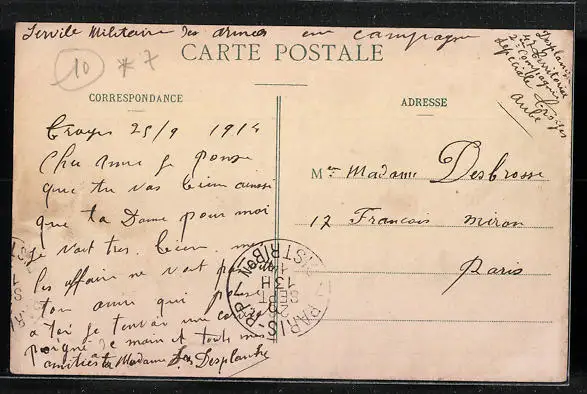 Servise Militaire des armées en campagne
CARTE POSTALE
10 * 7
Desplanche
47 Territorial
2e Compagnie
spéciale Troyes
Aube
CORRESPONDANCE
ADRESSE
Troyes 25/9 1914
Cher ami je pense
que tu vas bien ainsi
que ta Dame pour moi
je vait tres bien mé
les affaire ne vont pas
ton ami qui pense
a toi je t'envoi une
poigné de main et tout mes
amitiés a Madame Desplanche
Me Madame Desbrosse
17 Francois Miron
Paris
PARIS DISTRIBON
13H
28
SEPT